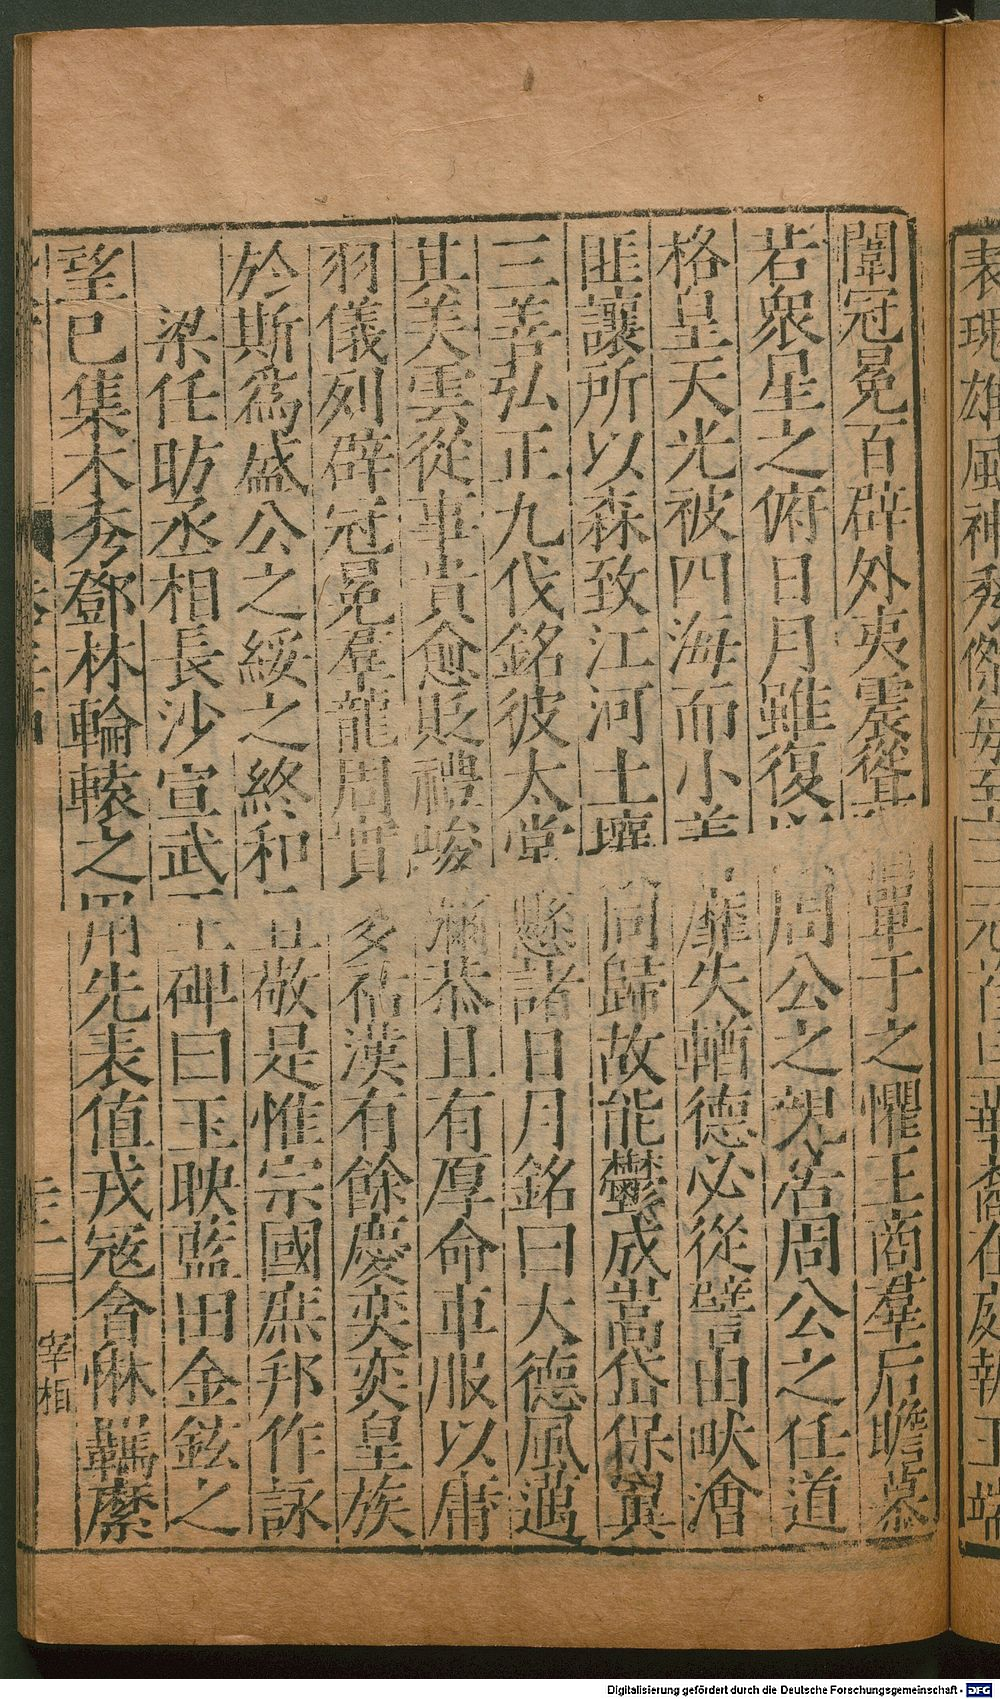 闈冠冕百辟外夷震聳單于之懼王商羣后瞻慕
若衆星之俯日月雖復周公之親若周公之任道
格皇天光被四海而小善靡失輶德必從譬由畎澮
匪讓所以森致江河土壤同歸故能鬱成嵩岱保冀
三善弘正九伐銘彼太常懸諸日月銘曰大德風邁
其美雲從事貴愈貶禮峻彌恭且有厚命車服以庸
羽儀列辟冠冕羣龍周實多祐漢有餘慶奕奕皇族
於斯爲盛公之綏之終和且敬是惟宗國庶邦作詠
梁任昉丞相長沙宣武王碑曰玉映藍田金鉉之
望已集木秀鄧林輪轅之用先表值戎寇會麻羈縻
三十一
宰相
表瑰雄風神秀傑每至三元 在庭執玉端
Digitalisierung gefördert durch die Deutsche Forschungsgemeinschaft - DFG